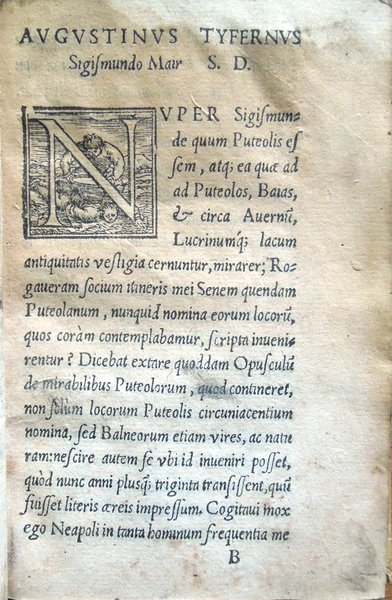 AVGVSTINVS TYFERNVS
Sigiſmundo Mair S. D.
NVPER Sigiſmun-
de quum Puteolis eſ
ſem, atq; ea quæ ad
ad Puteolos, Baias,
& circa Auernũ,
Lucrinumq́; lacum
antiquitatis veſtigia cernuntur, mirarer; Ro-
gaueram ſocium itineris mei Senem quendam
Puteolanum, nunquid nomina eorum locorũ,
quos coràm contemplabamur, ſcripta inueni-
rentur? Dicebat extare quoddam Opuſculũ
de mirabilibus Puteolorum, quod contineret,
non ſolùm locorum Puteolis circuniacentium
nomina, ſed Balneorum etiam vires, ac natu
ram: neſcire autem ſe vbi id inueniri poſſet,
quòd nunc anni pluſq́; triginta tranſiſſent, quũ
fuiſſet literis æreis impreſſum. Cogitaui mox
ego Neapoli in tanta hominum frequentia me
B